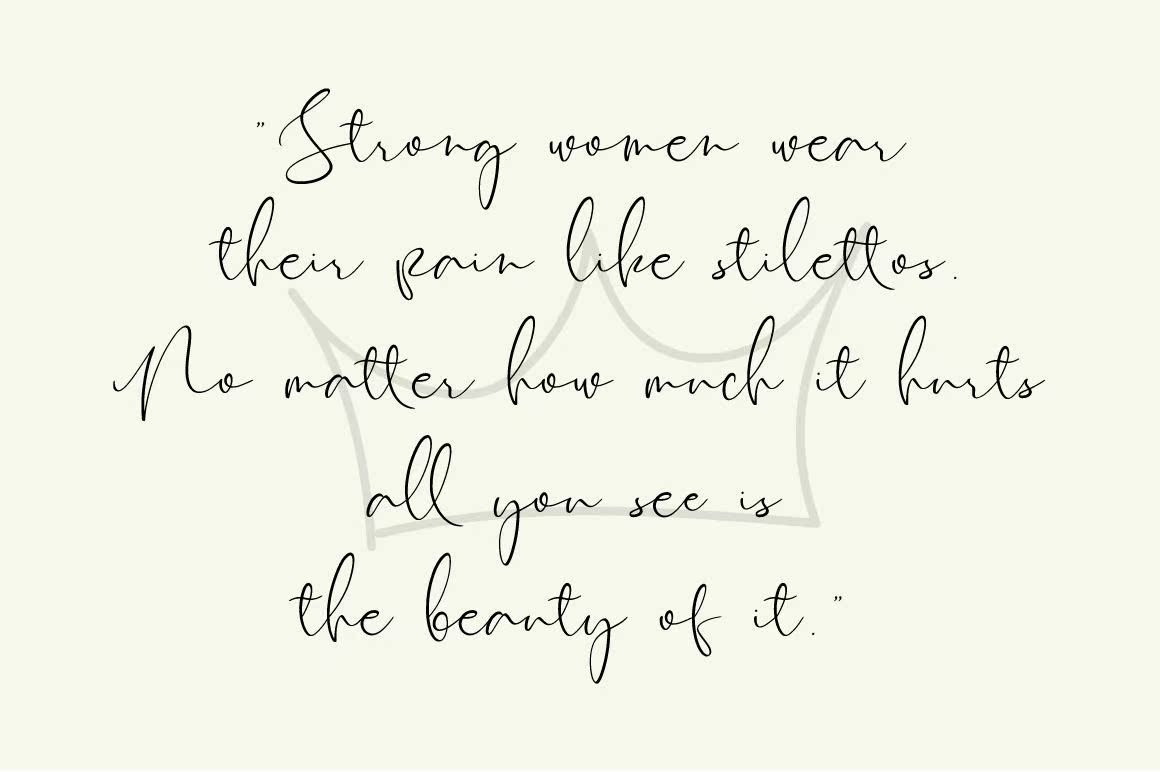 "Strong women wear
their pain like stilettos.
No matter how much it hurts
all you see is
the beauty of it."